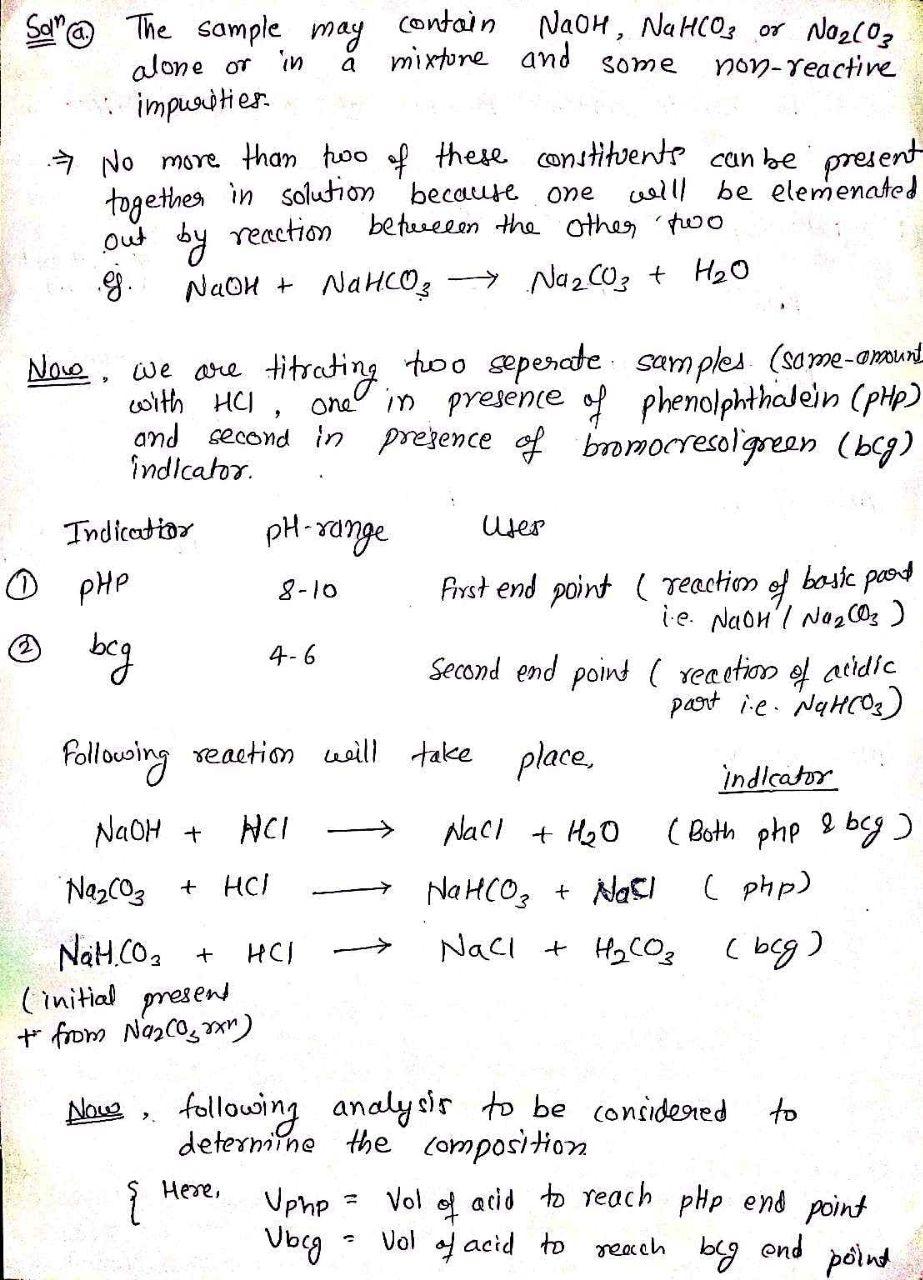 Solⁿ ⓐ The sample may contain NaOH, NaHCO₃ or Na₂CO₃
alone or in a mixture and some non-reactive
impurities.
⇒ No more than two of these constituents can be present
together in solution because one will be elemenated
out by reaction betweeen the other two
eg. NaOH + NaHCO₃ ⟶ Na₂CO₃ + H₂O
Now, we are titrating two seperate samples (same-amount
with HCl, one in presence of phenolphthalein (pHp)
and second in presence of bromocresolgreen (bcg)
indicator.
Indicatior pH-range Uses
① pHP 8-10 First end point ( reaction of basic part
i.e. NaOH / Na₂CO₃ )
② bcg 4-6 Second end point ( reaction of acidic
part i.e. NaHCO₃)
Following reaction will take place,
indicator
NaOH + HCl ⟶ NaCl + H₂O (Both php & bcg)
Na₂CO₃ + HCl ⟶ NaHCO₃ + NaCl ( php)
NaHCO₃ + HCl ⟶ NaCl + H₂CO₃ (bcg)
(initial present
+ from Na₂CO₃ rxn)
Now, following analysis to be considered to
determine the composition
{ Here, Vphp = Vol of acid to reach pHp end point
Vbcg = Vol of acid to reach bcg end point